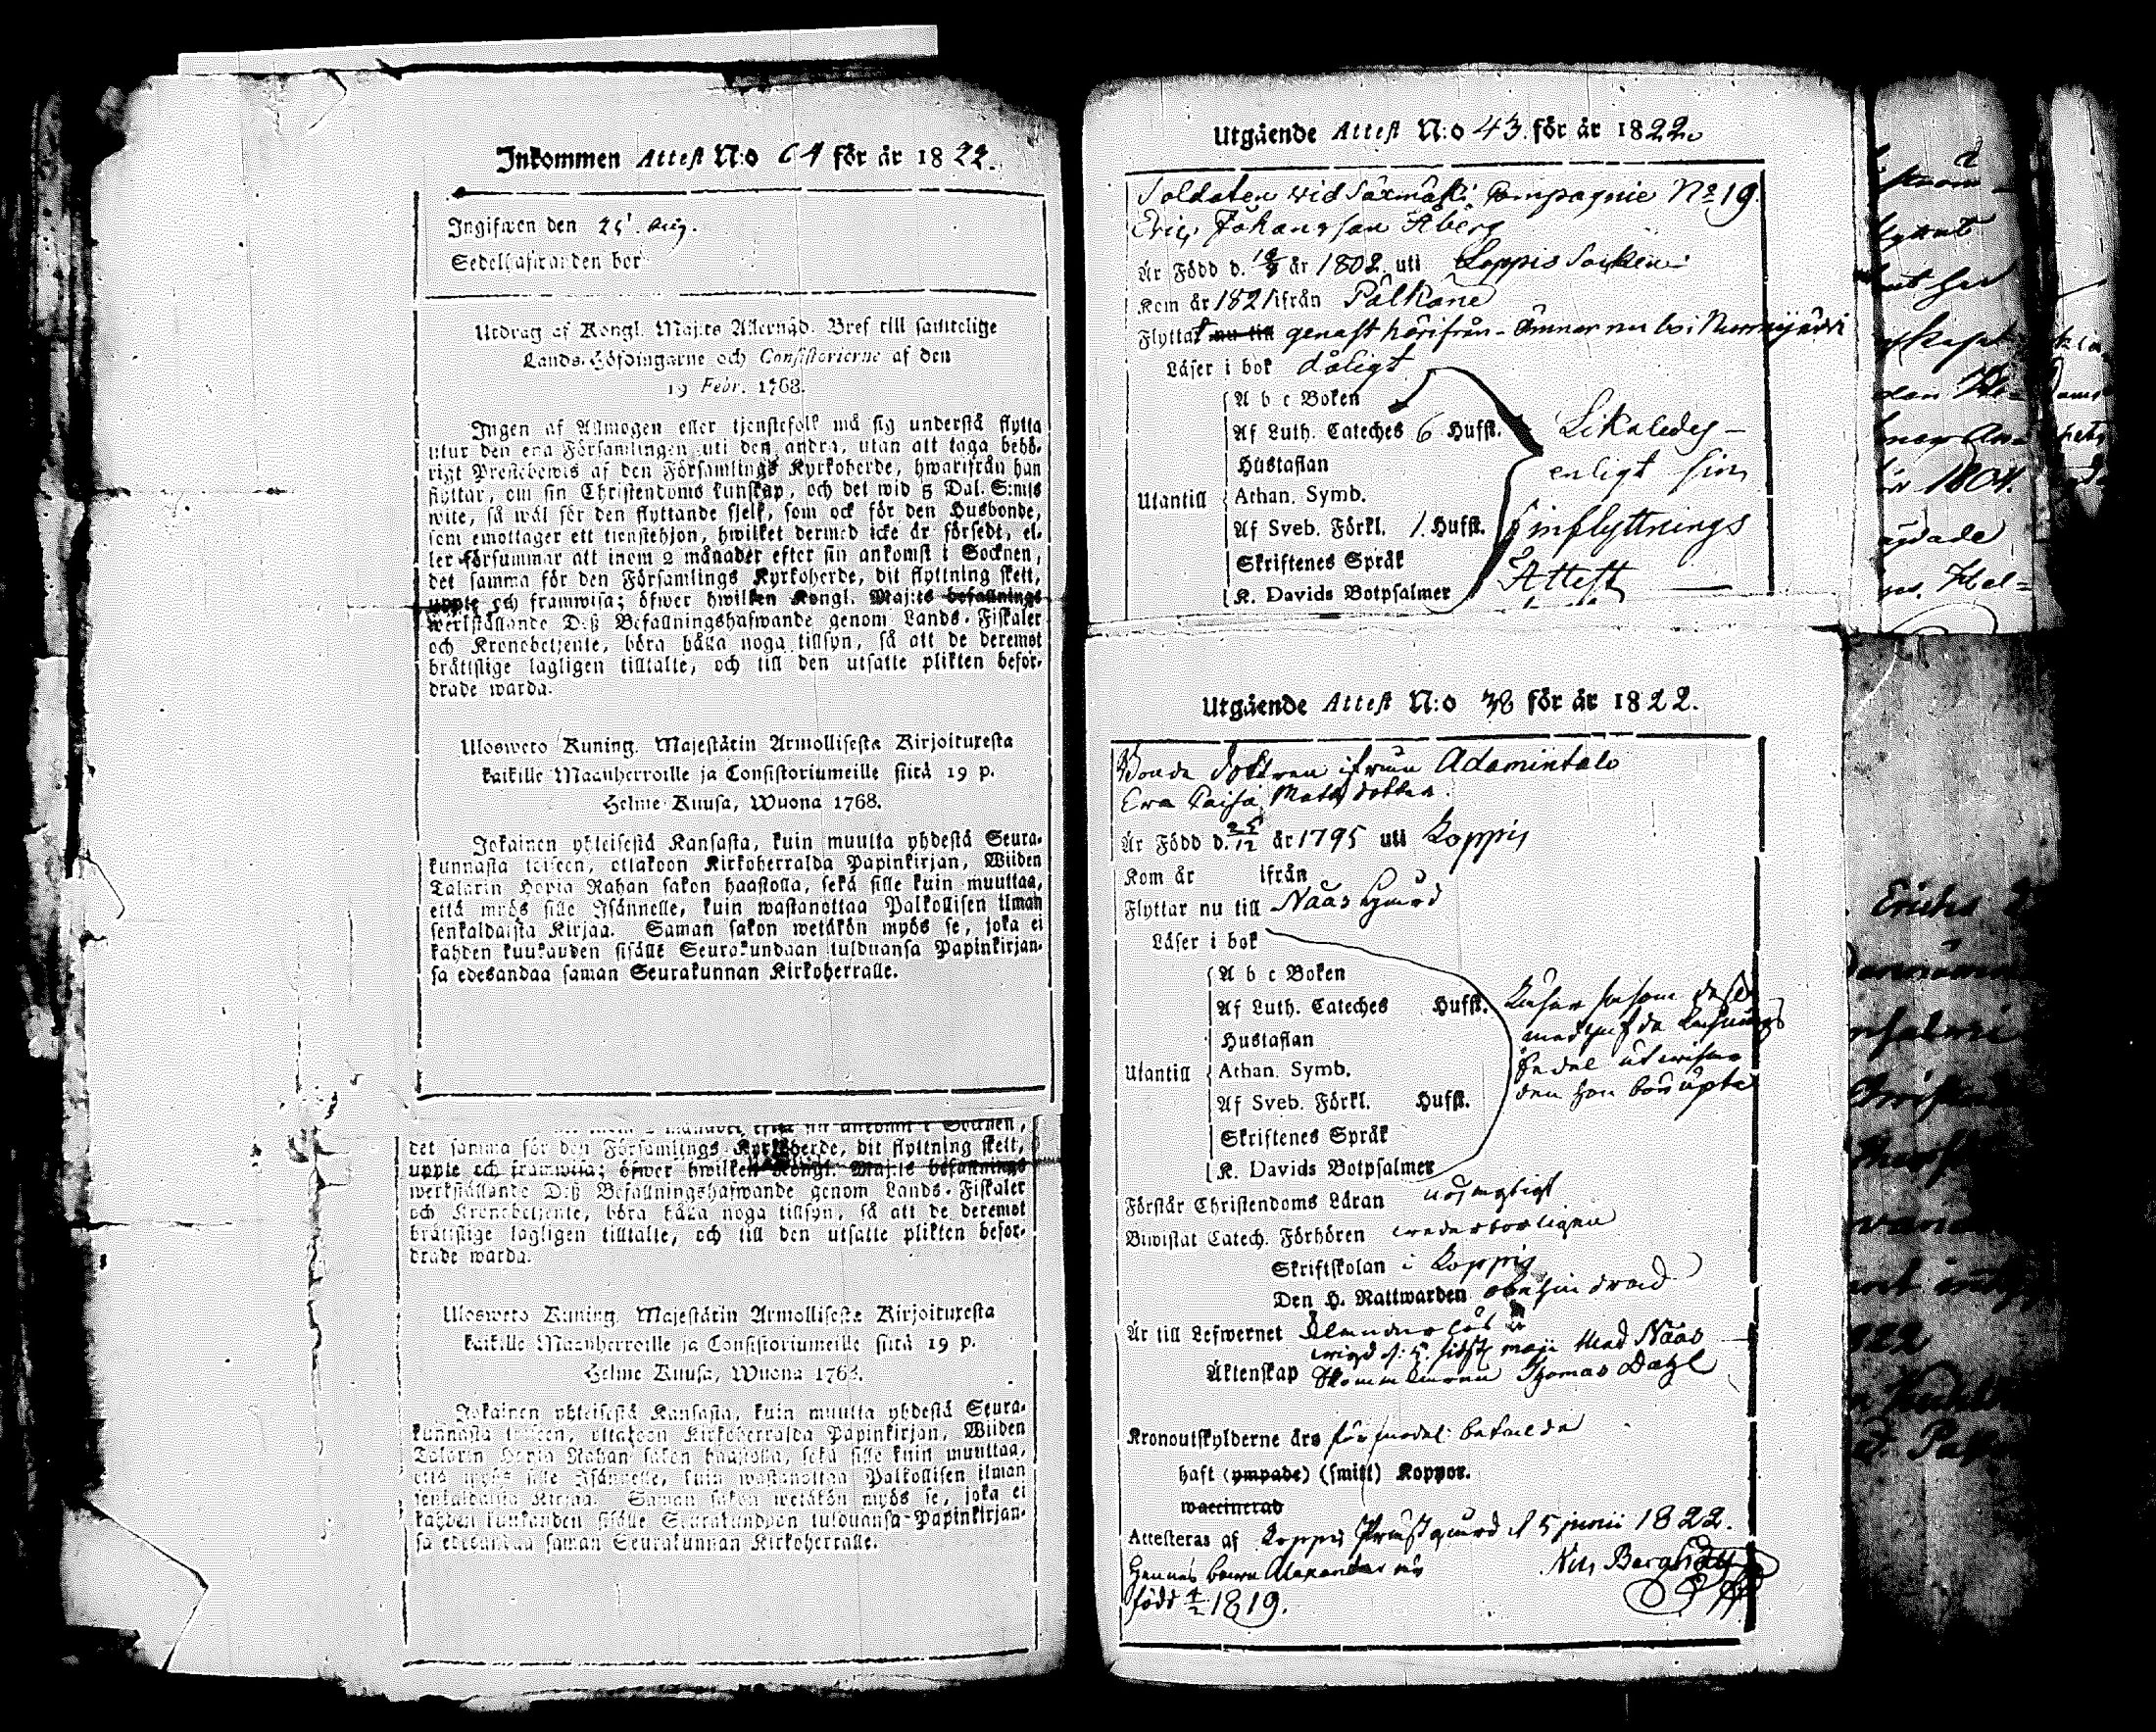 Inkommen Attest N:o 64 för år 1822.
Ingifwen den 25 Aug.
Sedelhafwanden bor
Utdrag af Kongl. Maj:ts Allernåd. Bref till samtelige
Lands-Höfdingarne och Consistorierne af den
19 Febr. 1768.
Ingen af Allmogen eller tjenstefolk må sig understå flytta
utur den ena Församlingen uti den andra, utan att taga behö-
rigt Prestebewis af den Församlings Kyrkoherde, hwarifrån han
flyttar, om sin Christendoms kunskap, och det wid 5 Dal. S:mts
wite, så wäl för den flyttande sjelf, som ock för den Husbonde,
som emottager ett tienstehjon, hwilket dermed icke är försedt, el-
ler försummar att inom 2 månader efter sin ankomst i Socknen,
det samma för den Församlings Kyrkoherde, dit flyttning skett,
uppte och framwisa; öfwer hwilken Kongl. Maj:ts befallnings
werkställande Deß Befallningshafwande genom Lands-Fiskaler
och Kronobetjente, böra hålla noga tillsyn, så att de deremot
bråttslige lagligen tilltalte, och till den utsatte plikten befor-
drade warda.
Ulosweto Kuning. Majestätin Armollisesta Kirjoituxesta
kaikille Maanherroille ja Consistoriumeille siitä 19 p.
Helme-Kuusa, Wuona 1768.
Jokainen yhteisestä Kansasta, kuin muutta yhdestä Seura-
kunnasta toiseen, ottakoon Kirkoherralda Papinkirjan, Wiiden
Talarin Hopia Rahan sakon haastolla, sekä sille kuin muuttaa,
että myös sille Isännelle, kuin wastanottaa Palkollisen ilman
senkaldaista Kirjaa. Saman sakon wetäkön myös se, joka ei
kahden kuukauden sisälle Seurakundaan tulduansa Papinkirjan-
sa edesandaa saman Seurakunnan Kirkoherralle.
det samma för den Församlings Kyrkoherde, dit flyttning skett,
uppte och framwisa; öfwer hwilken Kongl. Maj:ts befallnings
werkställande Deß Befallningshafwande genom Lands-Fiskaler
och Kronobetjente, böra hålla noga tillsyn, så att de deremot
bråttslige lagligen tilltalte, och till den utsatte plikten befor-
drade warda.
Ulosweto Kuning. Majestätin Armollisesta Kirjoituxesta
kaikille Maanherroille ja Consistoriumeille siitä 19 p.
Helme Kuusa, Wuona 1768.
Jokainen yhteisestä Kansasta, kuin muutta yhdestä Seura-
kunnasta toiseen, ottakoon Kirkoherralda Papinkirjan, Wiiden
Talarin Hopia Rahan sakon haastolla, sekä sille kuin muuttaa,
että myös sille Isännelle, kuin wastanottaa Palkollisen ilman
senkaldaista Kirjaa. Saman sakon wetäkön myös se, joka ei
kahden kuukauden sisälle Seurakundaan tulduansa Papinkirjan-
sa edesandaa saman Seurakunnan Kirkoherralle.
Utgående Attest N:o 43. för år 1822.
Soldaten vid Compagnie No 19.
Eric Johansson Åberg
Är Född d. år 1802 uti Loppis Socken
Kom år 1821 ifrån Pälkäne
Flyttat nu till genast härifrån - Ämnar nu bo i Nurmijärvi
Läser i bok dåligt
A b c Boken
Af Luth. Cateches 6 Hufst. Likaledes
Hustaflan enligt sin
Utantill Athan. Symb.
Af Sveb. Förkl. 1. Hufst. inflyttnings
Skriftenes Språk
K. Davids Botpsalmer Attest
Utgående Attest N:o 38 för år 1822.
Bonde dottren ifrån Adamintalo
Eva Caisa Matts dotter
Är Född d. 25/12 år 1795 uti Loppis
Kom år ifrån
Flyttar nu till Nääs gård
Läser i bok
A b c Boken
Af Luth. Cateches Hufst.
Hustaflan
Utantill Athan. Symb. utwisar
Af Sveb. Förkl. Hufst. den hon bör uppte
Skriftenes Språk
K. Davids Botpsalmer
Förstår Christendoms Läran nöjagtigt
Biwistat Catech. Förhören wederbörligen
Skriftskolan i Loppis
Den H. Nattwarden obehindrad
Är till Lefwernet
wigd d. 5 sidstl. maji Med Nääs
Äktenskap Thomas Dahl
Kronoutskylderne äro betalde
haft (ympade) (smitt) Koppor.
waccinerad
Attesteras af Loppis Prästgård d 5 junii 1822.
Hennes barn Alexander är Nils Bergh
född 4/2 1819.
1804.